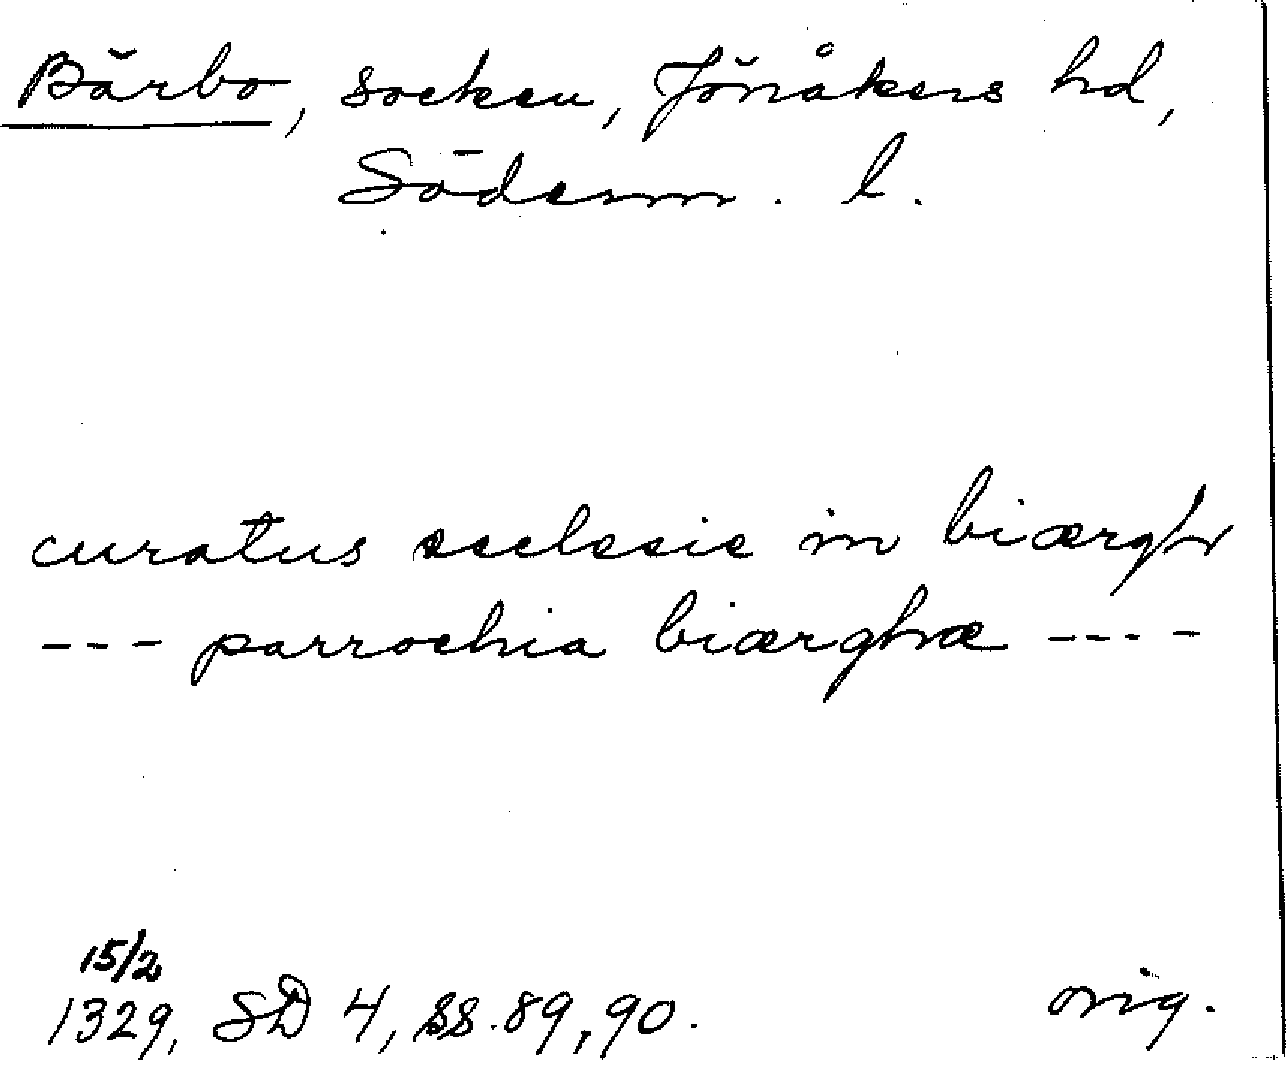 Bärbo, socken, Jönåkers hd,
Söderm. l.
curatus ecclesie in biærgh
--- parrochia biærghæ ----
15/2
1329, SD 4, ss. 89, 90.
orig.